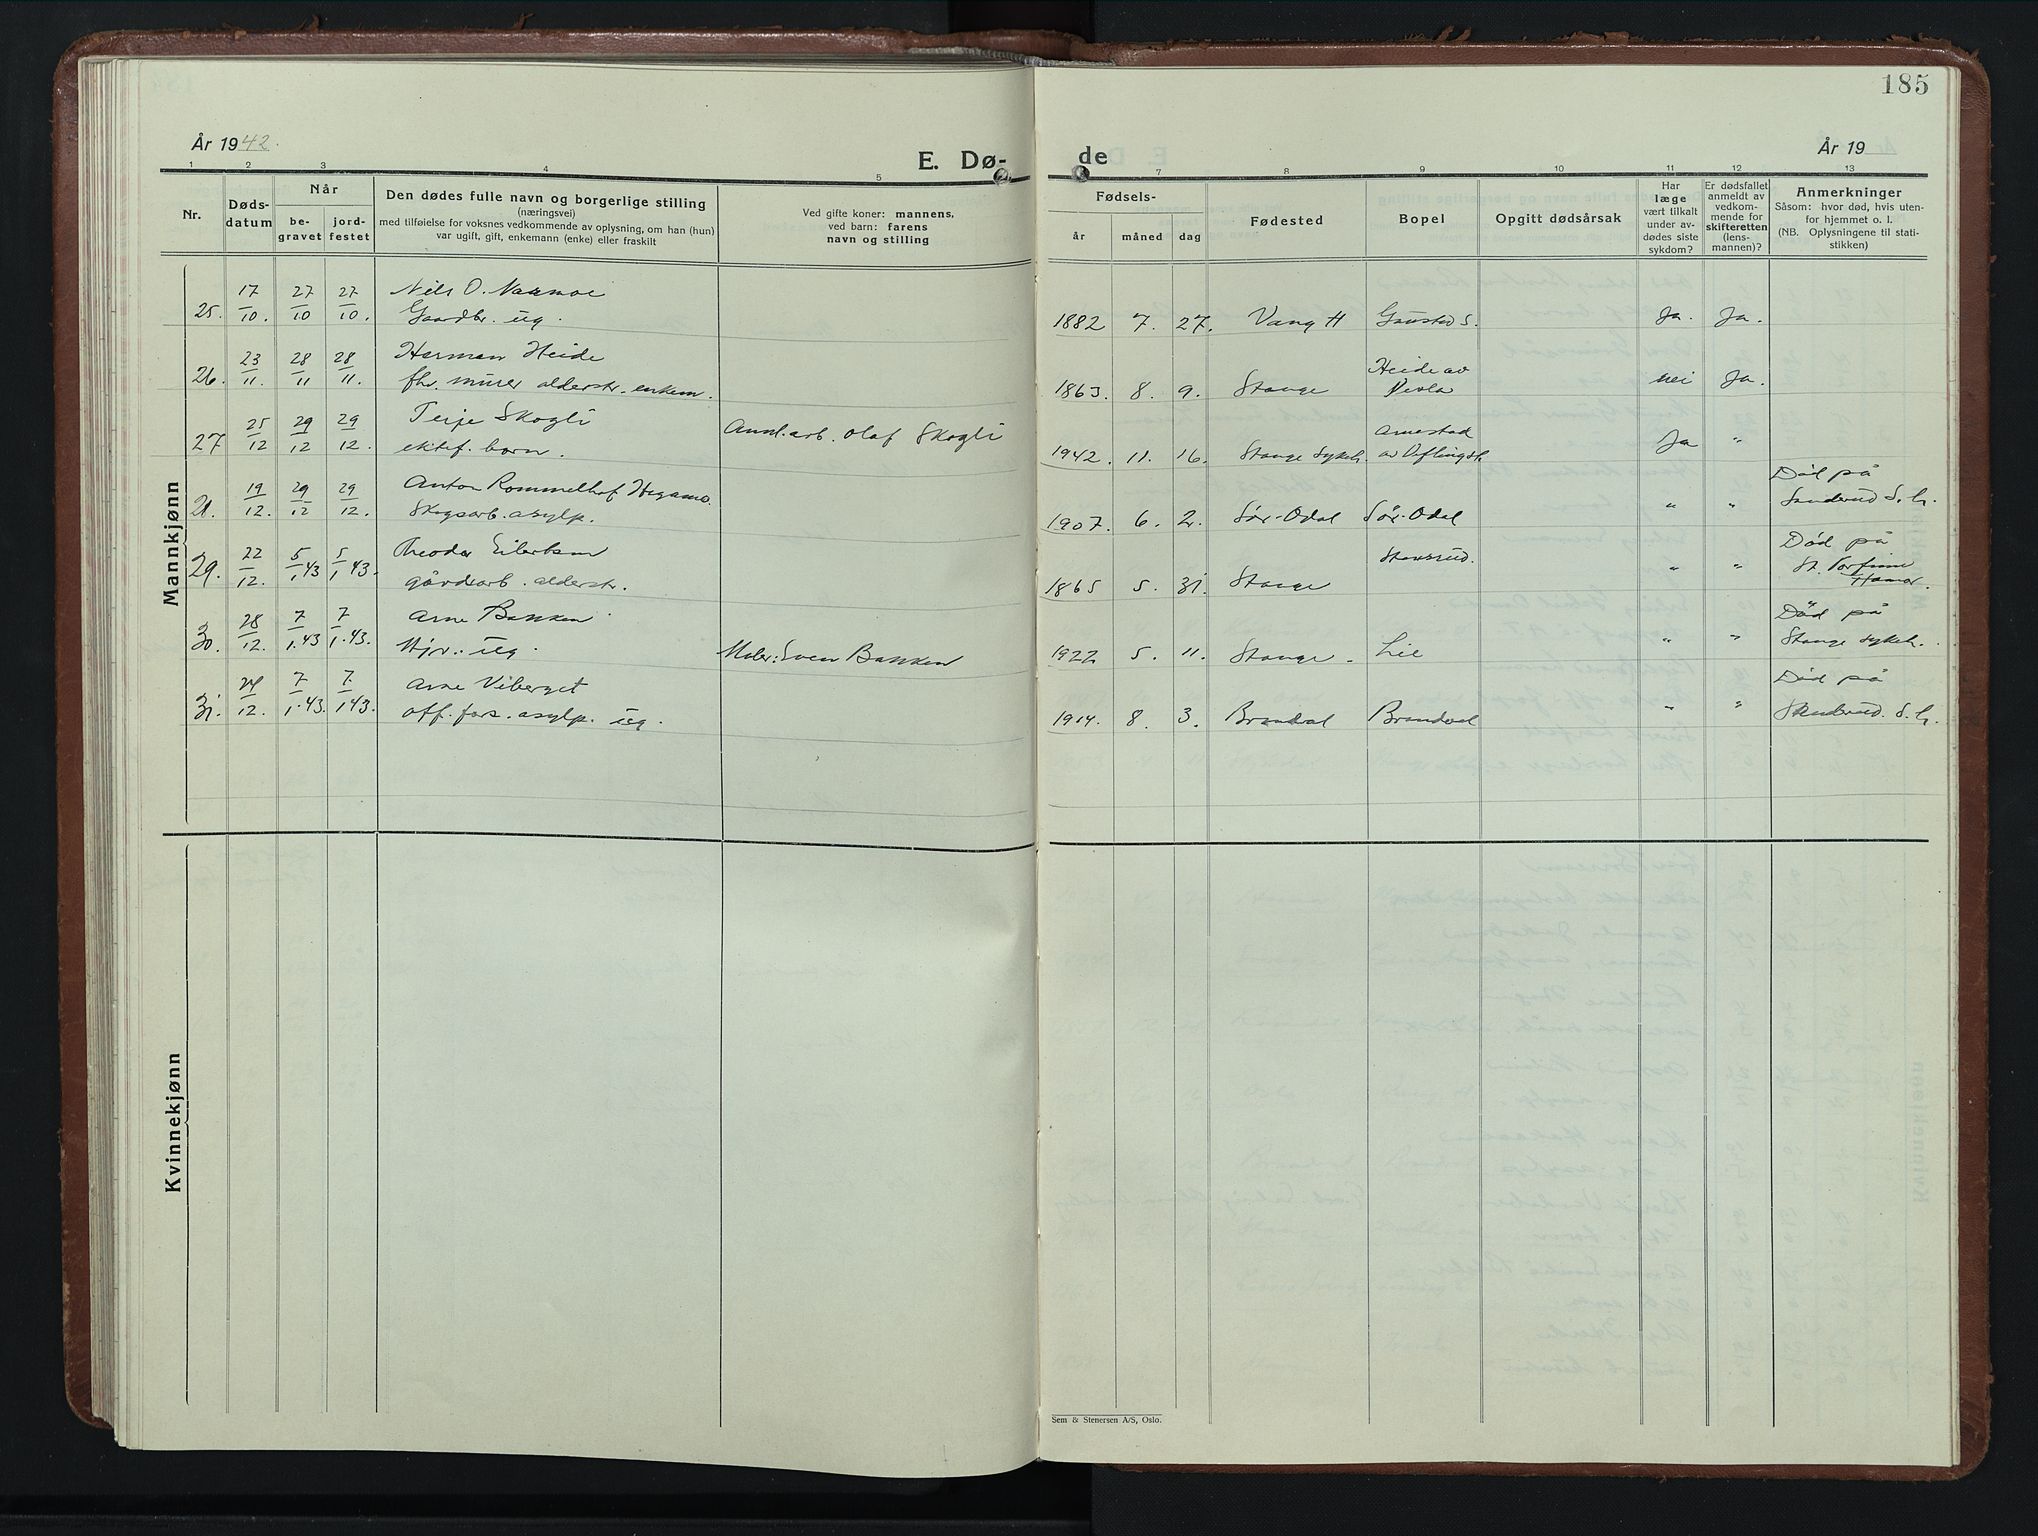 185
År 1942.
E. Dø-
de
År 19
1 2 3 4 5 7 8 9 10 11 12 13
Nr.
Døds-
datum
Når
be-
gravet
jord-
festet
Den dødes fulle navn og borgerlige stilling
(næringsvei)
med tilføielse for voksnes vedkommende av oplysning, om han (hun)
var ugift, gift, enkemann (enke) eller fraskilt
Ved gifte koner: mannens,
ved barn: farens
navn og stilling
Fødsels-
år måned dag
Fødested
Bopel
Opgitt dødsårsak
Har
læge
vært tilkalt
under av-
dødes siste
sykdom?
Er dødsfallet
anmeldt av
vedkom-
mende for
skifteretten
(lens-
mannen)?
Anmerkninger
Såsom: hvor død, hvis uten-
for hjemmet o. l.
(NB. Oplysningene til stati-
stikken)
Mannkjønn
25. 17/10. 27/10 27/10. Nils O.
Gaardbr. ug.
1882 7. 27. Vang H Gaustad S. Ja. Ja.
26. 23/11. 28/11 28/11. Herman Heide
fhv. murer alderstr. enkem.
1863. 8. 9. Stange Heide av
nei Ja.
27 25/12 29/12 29/12. Terje Skogli
ektef. barn.
Anl.arb. Olaf Skogli
1942. 11. 16. Stange Sykeh. Arnestad
av
Ja "
28. 19/12. 29/12 29/12. Anton Rommelhof
Skogsarb. asylp.
1907. 6. 2. Sør-Odal Sør-Odal " " Død på
Sanderud S.h.
29. 22/12. 5/1 43 5/1 43. Theodor Eilertsen
gårdsarb. alderstr.
1865 5. 31. Stange Stensrud. " " Død på
St. Torfinn
Hamar.
30. 28/12. 7/1.43 7/1.43. Arne Bakken
ug.
Maler: Sven Bakken
1922 5. 11. Stange. Lie " " Død på
Stange Sykeh.
31. 24/12. 7/1.43. 7/1 43. Arne Viberget
off. fors. asylp. ug.
1914. 8. 3. Brandval Brandval " " Død på
Sanderud S.h.
Kvinnekjønn
Sem & Stenersen A/S, Oslo.